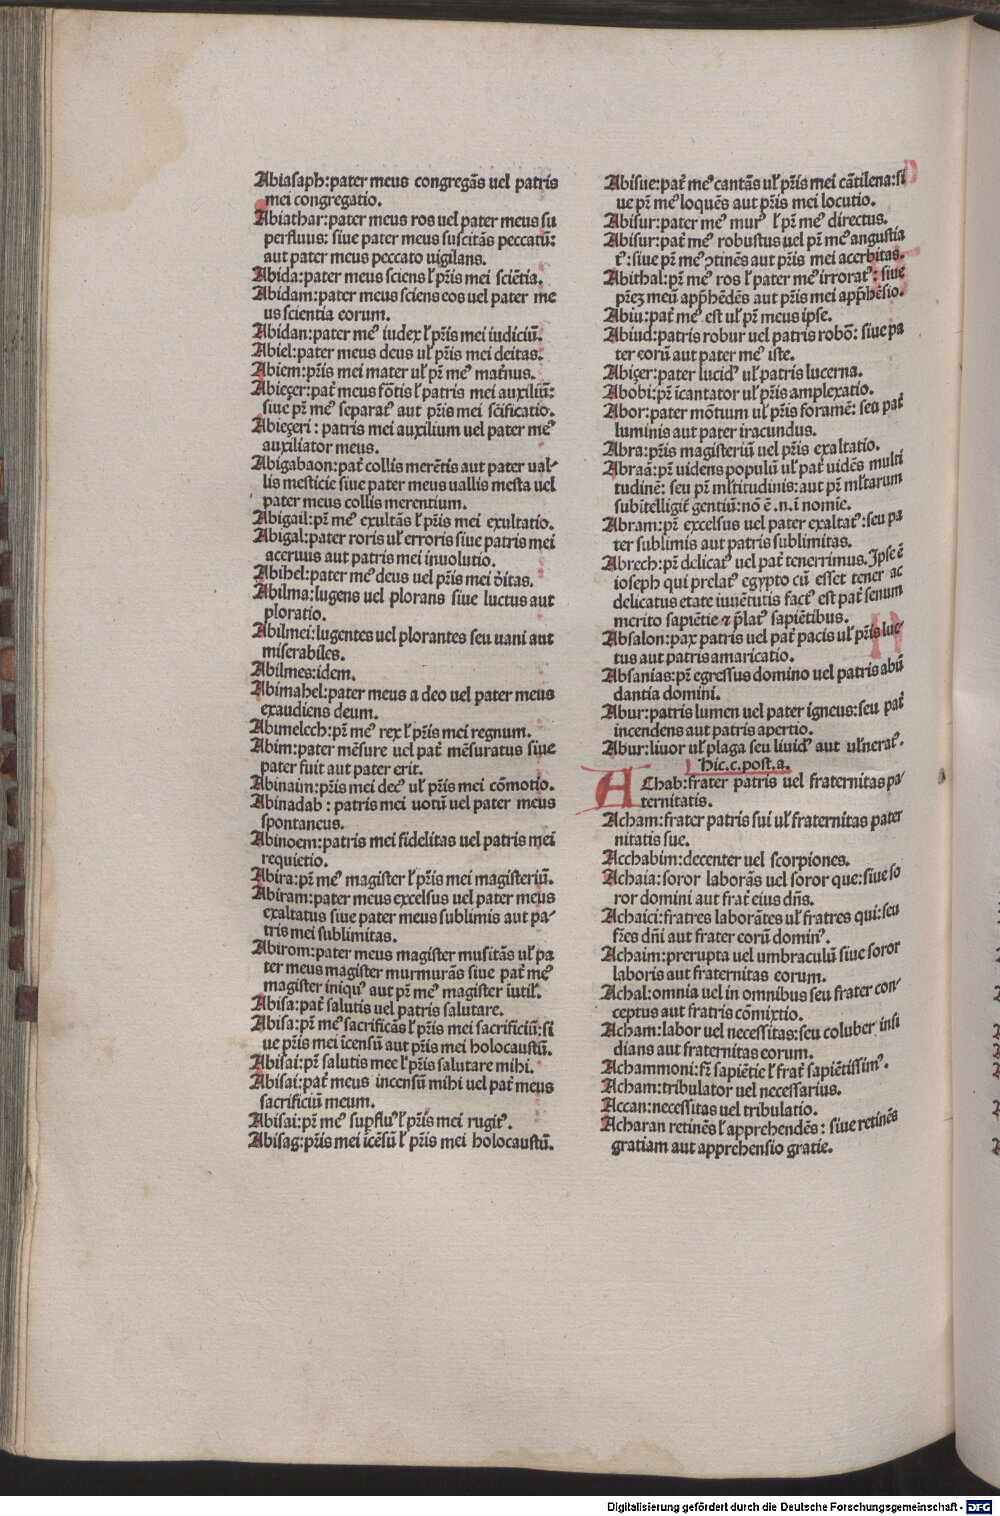 Abiasaph:pater meus congregãs uel patris
mei congregatio.
Abiathar:pater meus ros uel pater meus su
perfluus: siue pater meus suscitãs peccatũ:
aut pater meus peccato uigilans.
Abida:pater meus sciens ł pr̃is mei sciẽtia.
Abidam:pater meus sciens eos uel pater me
us scientia eorum.
Abidan:pater meꝰ iudex ł pr̃is mei iudiciũ.
Abiel:pater meus deus uł pr̃is mei deitas.
Abiem:pr̃is mei mater uł pr̃ meꝰ mat̃nus.
Abieçer:pat̃ meus fõtis ł patris mei auxiliũ:
siue pr̃ meꝰ separatꝰ aut pr̃is mei sc̃ificatio.
Abieçeri: patris mei auxilium uel pater meꝰ
auxiliator meus.
Abigabaon:pat̃ collis merẽtis aut pater ual-
lis mesticie siue pater meus uallis mesta uel
pater meus collis merentium.
Abigail:pr̃ meꝰ exultãs ł pr̃is mei exultatio.
Abigal:pater roris uł erroris siue patris mei
aceruus aut patris mei inuolutio.
Abihel:pater meꝰ deus uel pr̃is mei d̃itas.
Abilma:lugens uel plorans siue luctus aut
ploratio.
Abilmei:lugentes uel plorantes seu uani aut
miserabiles.
Abilmes:idem.
Abimahel:pater meus a deo uel pater meus
exaudiens deum.
Abimelech:pr̃ meꝰ rex ł pr̃is mei regnum.
Abim:pater mẽsure uel pat̃ mẽsuratus siue
pater fuit aut pater erit.
Abinaim:pr̃is mei decꝰ uł pr̃is mei cõmotio.
Abinadab: patris mei uotũ uel pater meus
spontaneus.
Abinoem:patris mei fidelitas uel patris mei
requietio.
Abira:pr̃ meꝰ magister ł pr̃is mei magisteriũ.
Abiram:pater meus excelsus uel pater meus
exaltatus siue pater meus sublimis aut pa-
tris mei sublimitas.
Abirom:pater meus magister musitãs uł pa
ter meus magister murmurãs siue pat̃ meꝰ
magister iniquꝰ aut pr̃ meꝰ magister ĩutił.
Abisa:pat̃ salutis uel patris salutare.
Abisa:pr̃ meꝰ sacrificãs ł pr̃is mei sacrificiũ:si
ue pr̃is mei ĩcensũ aut pr̃is mei holocaustũ.
Abisai:pr̃ salutis mee ł pr̃is salutare mihi.
Abisai:pat̃ meus incensũ mihi uel pat̃ meus
sacrificiũ meum.
Abisai:pr̃ meꝰ supfluꝰ ł pr̃is mei rugitꝰ.
Abisag:pr̃is mei ĩcẽsũ ł pr̃is mei holocaustũ.
Abisue:pat̃ meꝰ cantãs uł pr̃is mei cãtilena:si
ue pr̃ meꝰ loquẽs aut pr̃is mei locutio.
Abisur:pater meꝰ murꝰ ł pr̃ meꝰ directus.
Abisur:pat̃ meꝰ robustus uel pr̃ meꝰ angustia
tꝰ:siue pr̃ meꝰ ꝯtinẽs aut pr̃is mei acerbitas.
Abithal:pr̃ meꝰ ros ł pater meꝰ irroratꝰ: siue
pr̃eʒ meũ app̃hẽdẽs aut pr̃is mei app̃hẽsio.
Abiu:pat̃ meꝰ est uł pr̃ meus ipse.
Abiud:patris robur uel patris robõ: siue pa
ter eorũ aut pater meꝰ iste.
Abiçer:pater lucidꝰ uł patris lucerna.
Abobi:pr̃ ĩcantator uł pr̃is amplexatio.
Abor:pater mõtium uł pr̃is foramẽ: seu pat̃
luminis aut pater iracundus.
Abra:pr̃is magisteriũ uel pr̃is exaltatio.
Abraã:pr̃ uidens populũ uł pat̃ uidẽs multi
tudinẽ: seu pr̃ młtitudinis:aut pr̃ młtarum
subĩtelligit̃ gentiũ:nõ ẽ .n.ĩ nomĩe.
Abram:pr̃ excelsus uel pater exaltatꝰ:seu pa
ter sublimis aut patris sublimitas.
Abrech:pr̃ delicatꝰ uel pat̃ tenerrimus. Ipse ẽ
ioseph qui prelatꝰ egypto cũ esset tener ac
delicatus etate iuuẽtutis factꝰ est pat̃ senum
merito sapiẽtie ⁊ p̃latꝰ sapiẽtibus.
Absalon:pax patris uel pat̃ pacis uł pr̃is luc-
tus aut patris amaricatio.
Absanias:pr̃ egressus domino uel patris abũ
dantia domini.
Abur:patris lumen uel pater igneus:seu pat̃
incendens aut patris apertio.
Abur:liuor uł plaga seu liuidꝰ aut ułneratꝰ.
hic.c.post.a.
AChab:frater patris uel fraternitas pa-
ternitatis.
Acham:frater patris sui uł fraternitas pater
nitatis sue.
Acchabim:decenter uel scorpiones.
Achaia:soror laborãs uel soror que:siue so
ror domini aut frat̃ eius dñs.
Achaici:fratres laborãtes uł fratres qui:seu
fr̃es dñi aut frater eorũ dominꝰ.
Achaim:prerupta uel umbraculũ siue soror
laboris aut fraternitas eorum.
Achal:omnia uel in omnibus seu frater con-
ceptus aut fratris cõmixtio.
Acham:labor uel necessitas:seu coluber insi
dians aut fraternitas eorum.
Achammoni:fr̃ sapiẽtie ł frat̃ sapiẽtissimꝰ.
Acham:tribulator uel necessarius.
Accan:necessitas uel tribulatio.
Acharan retinẽs ł apprehendẽs: siue retinẽs
gratiam aut apprehensio gratie.
Digitalisierung gefördert durch die Deutsche Forschungsgemeinschaft - DFG